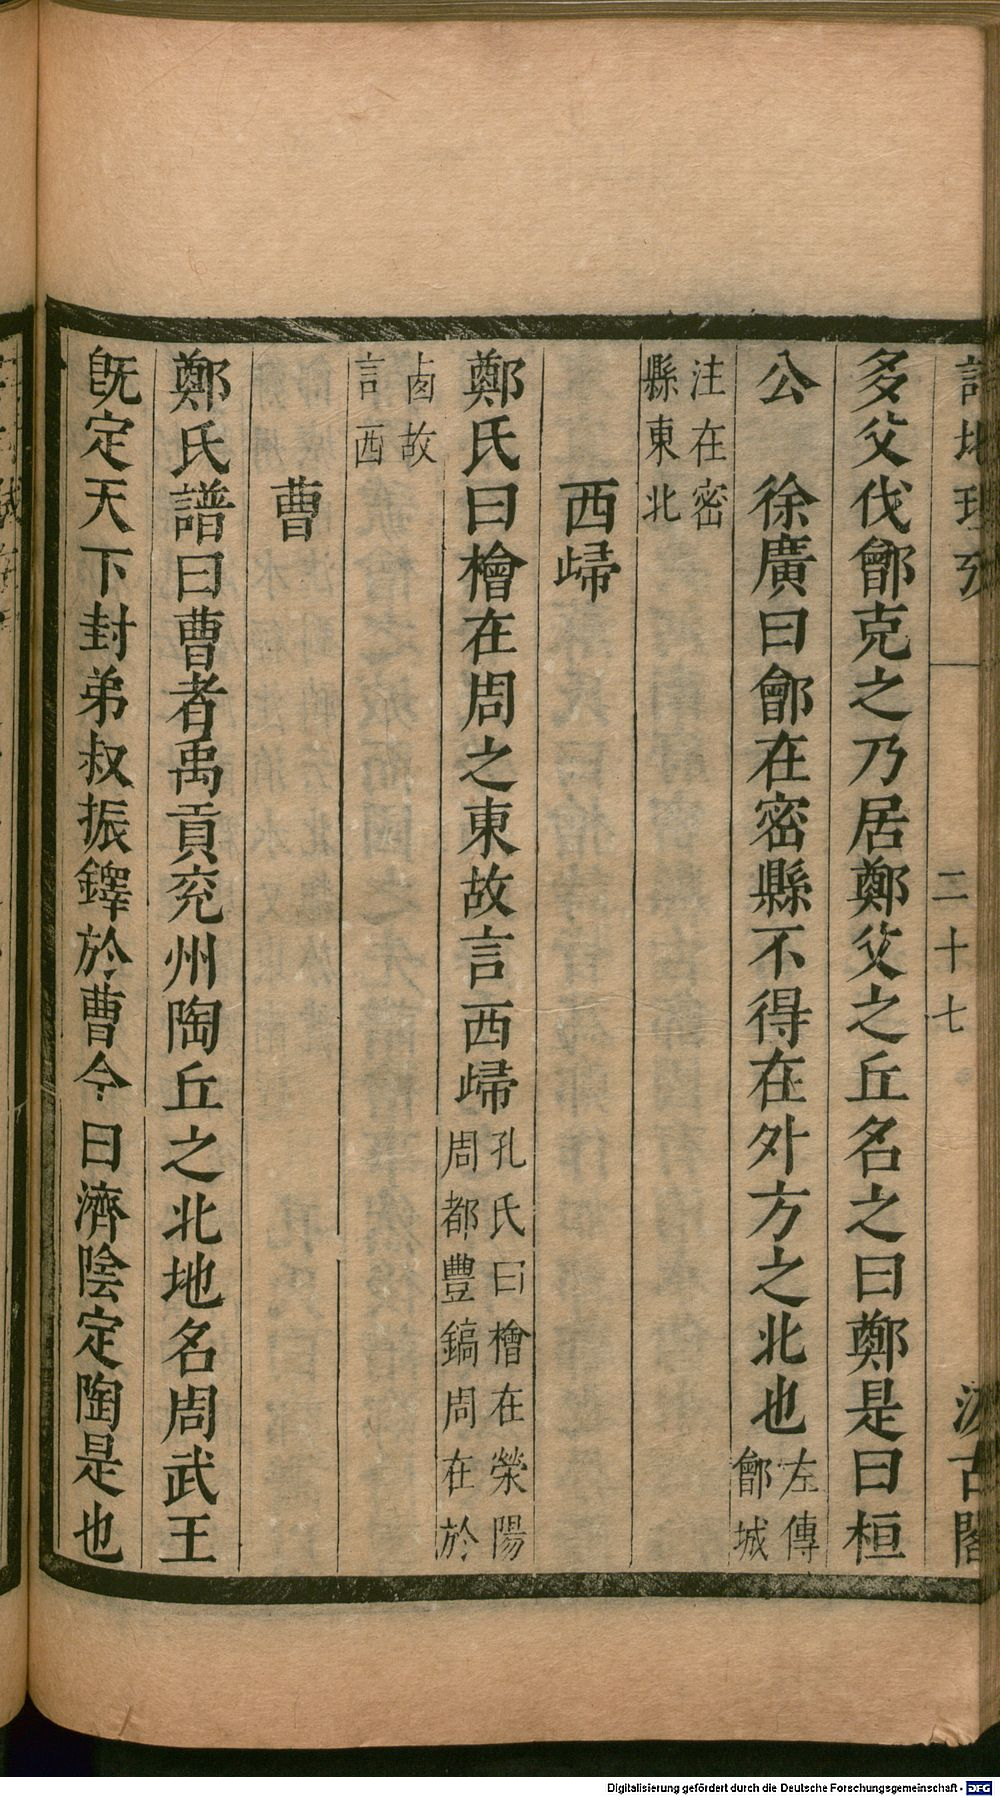 詩地理攷 二十七 汲古閣
多父伐鄶克之乃居鄭父之丘名之曰鄭是曰桓
公 徐廣曰鄶在密縣不得在外方之北也 左傳 鄶城
注在密
縣東北
西㱕
鄭氏曰檜在周之東故言西㱕 孔氏曰檜在榮陽 周都豐鎬周在於
卤故
言西
曹
鄭氏譜曰曹者禹貢兖州陶丘之北地名周武王
旣定天下封弟叔振鐸於曹今曰濟陰定陶是也
Digitalisierung gefördert durch die Deutsche Forschungsgemeinschaft - DFG